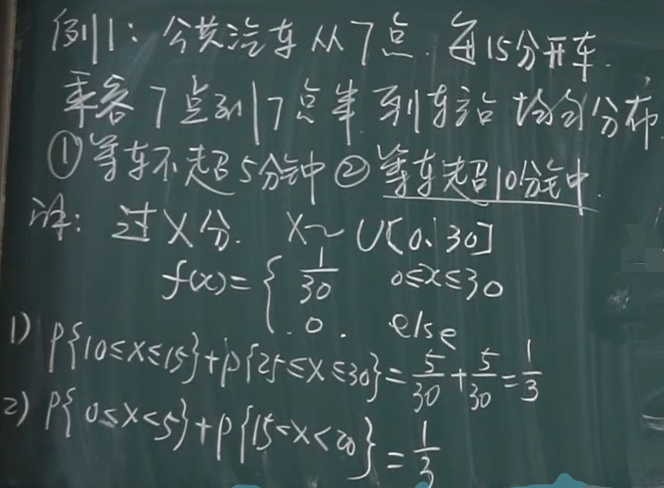 例1：公共汽车从7点.每15分开车.
乘客7点到7点半到车站 均匀分布
①等车不超5分钟 ②等车超10分钟.
详：过X分. X~U[0、30]
f(x)={ 1/30 0≤x≤30
0. else
1) P{10≤X≤15}+P{25≤X≤30}=5/30+5/30=1/3
2) P{0≤X<5}+P{15<X<20}=1/3